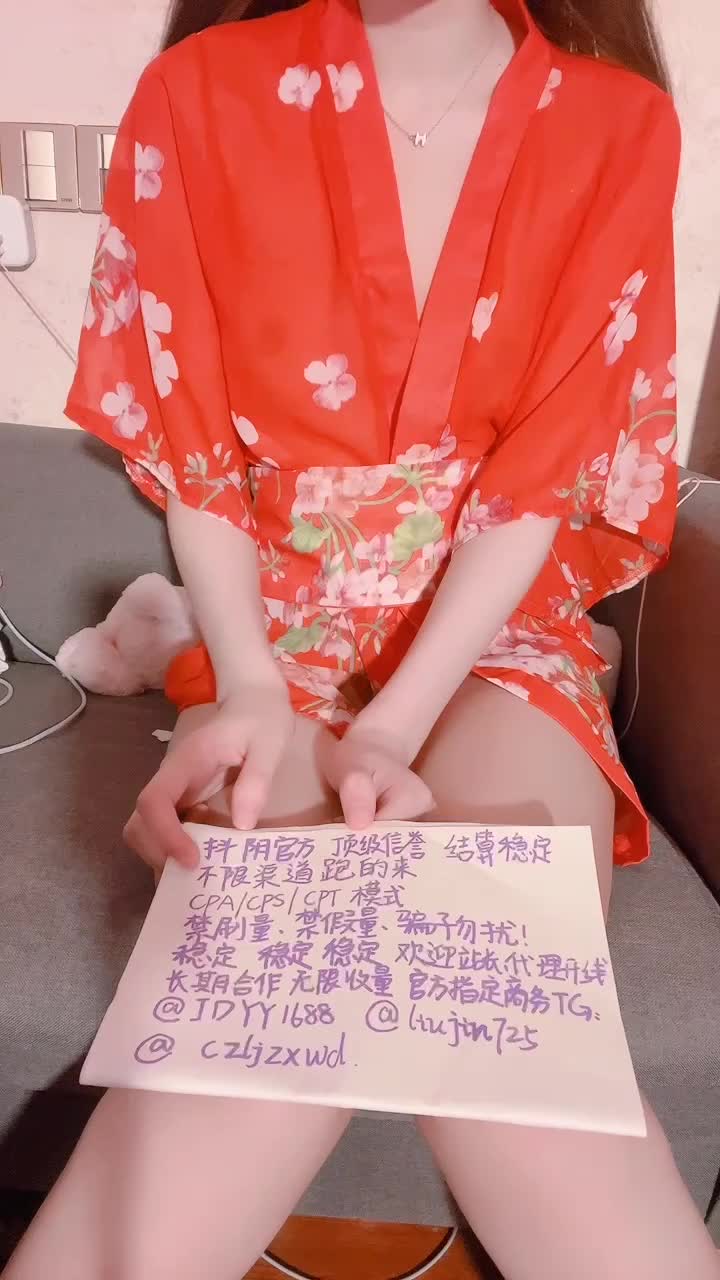 抖阴官方 顶级信誉 结算稳定
不限渠道跑的来
CPA/CPS/CPT 模式
禁刷量、禁假量、骗子勿扰!
稳定 稳定 稳定 欢迎站长代理开线
长期合作 无限收量 官方指定商务TG:
@JDYY1688 @liujin725
@czljzxwd.